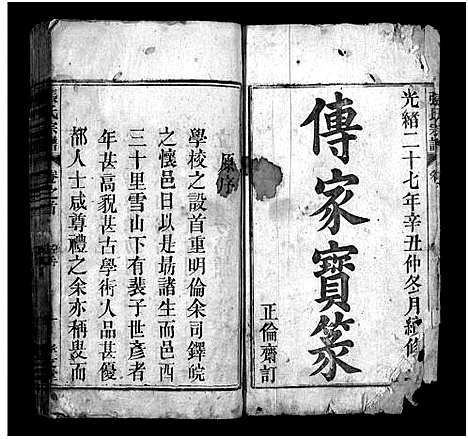 光緒二十七年辛丑仲冬月續修
傳家寶箓
正倫齋訂
原序
學校之設首重明倫余司鐸皖
之懷邑日以是勗諸生而邑西
三十里雪山下有裴子世彥者
年甚高貌甚古學術人品甚優
都人士咸尊禮之余亦稱叟而